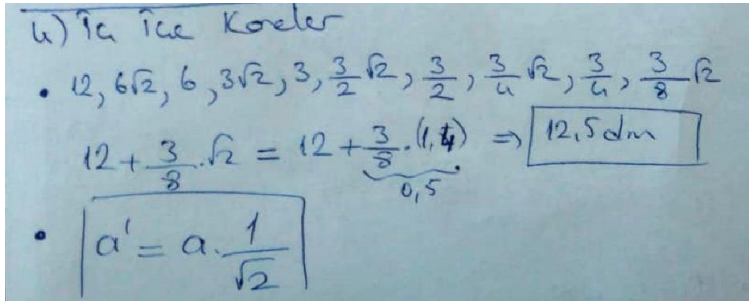 4) İç İçe Kareler
• 12, 6√2, 6, 3√2, 3, 3/2 √2, 3/2, 3/4 √2, 3/4, 3/8 √2
12 + 3/8 . √2 = 12 + 3/8 . (1,4) ⇒ 12,5 dm
0,5
• a' = a . 1/√2